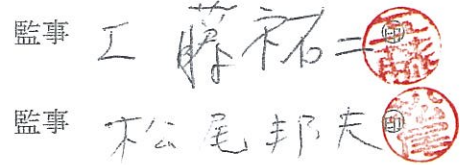 監事 工藤祐二 ㊞
監事 松尾邦夫 ㊞